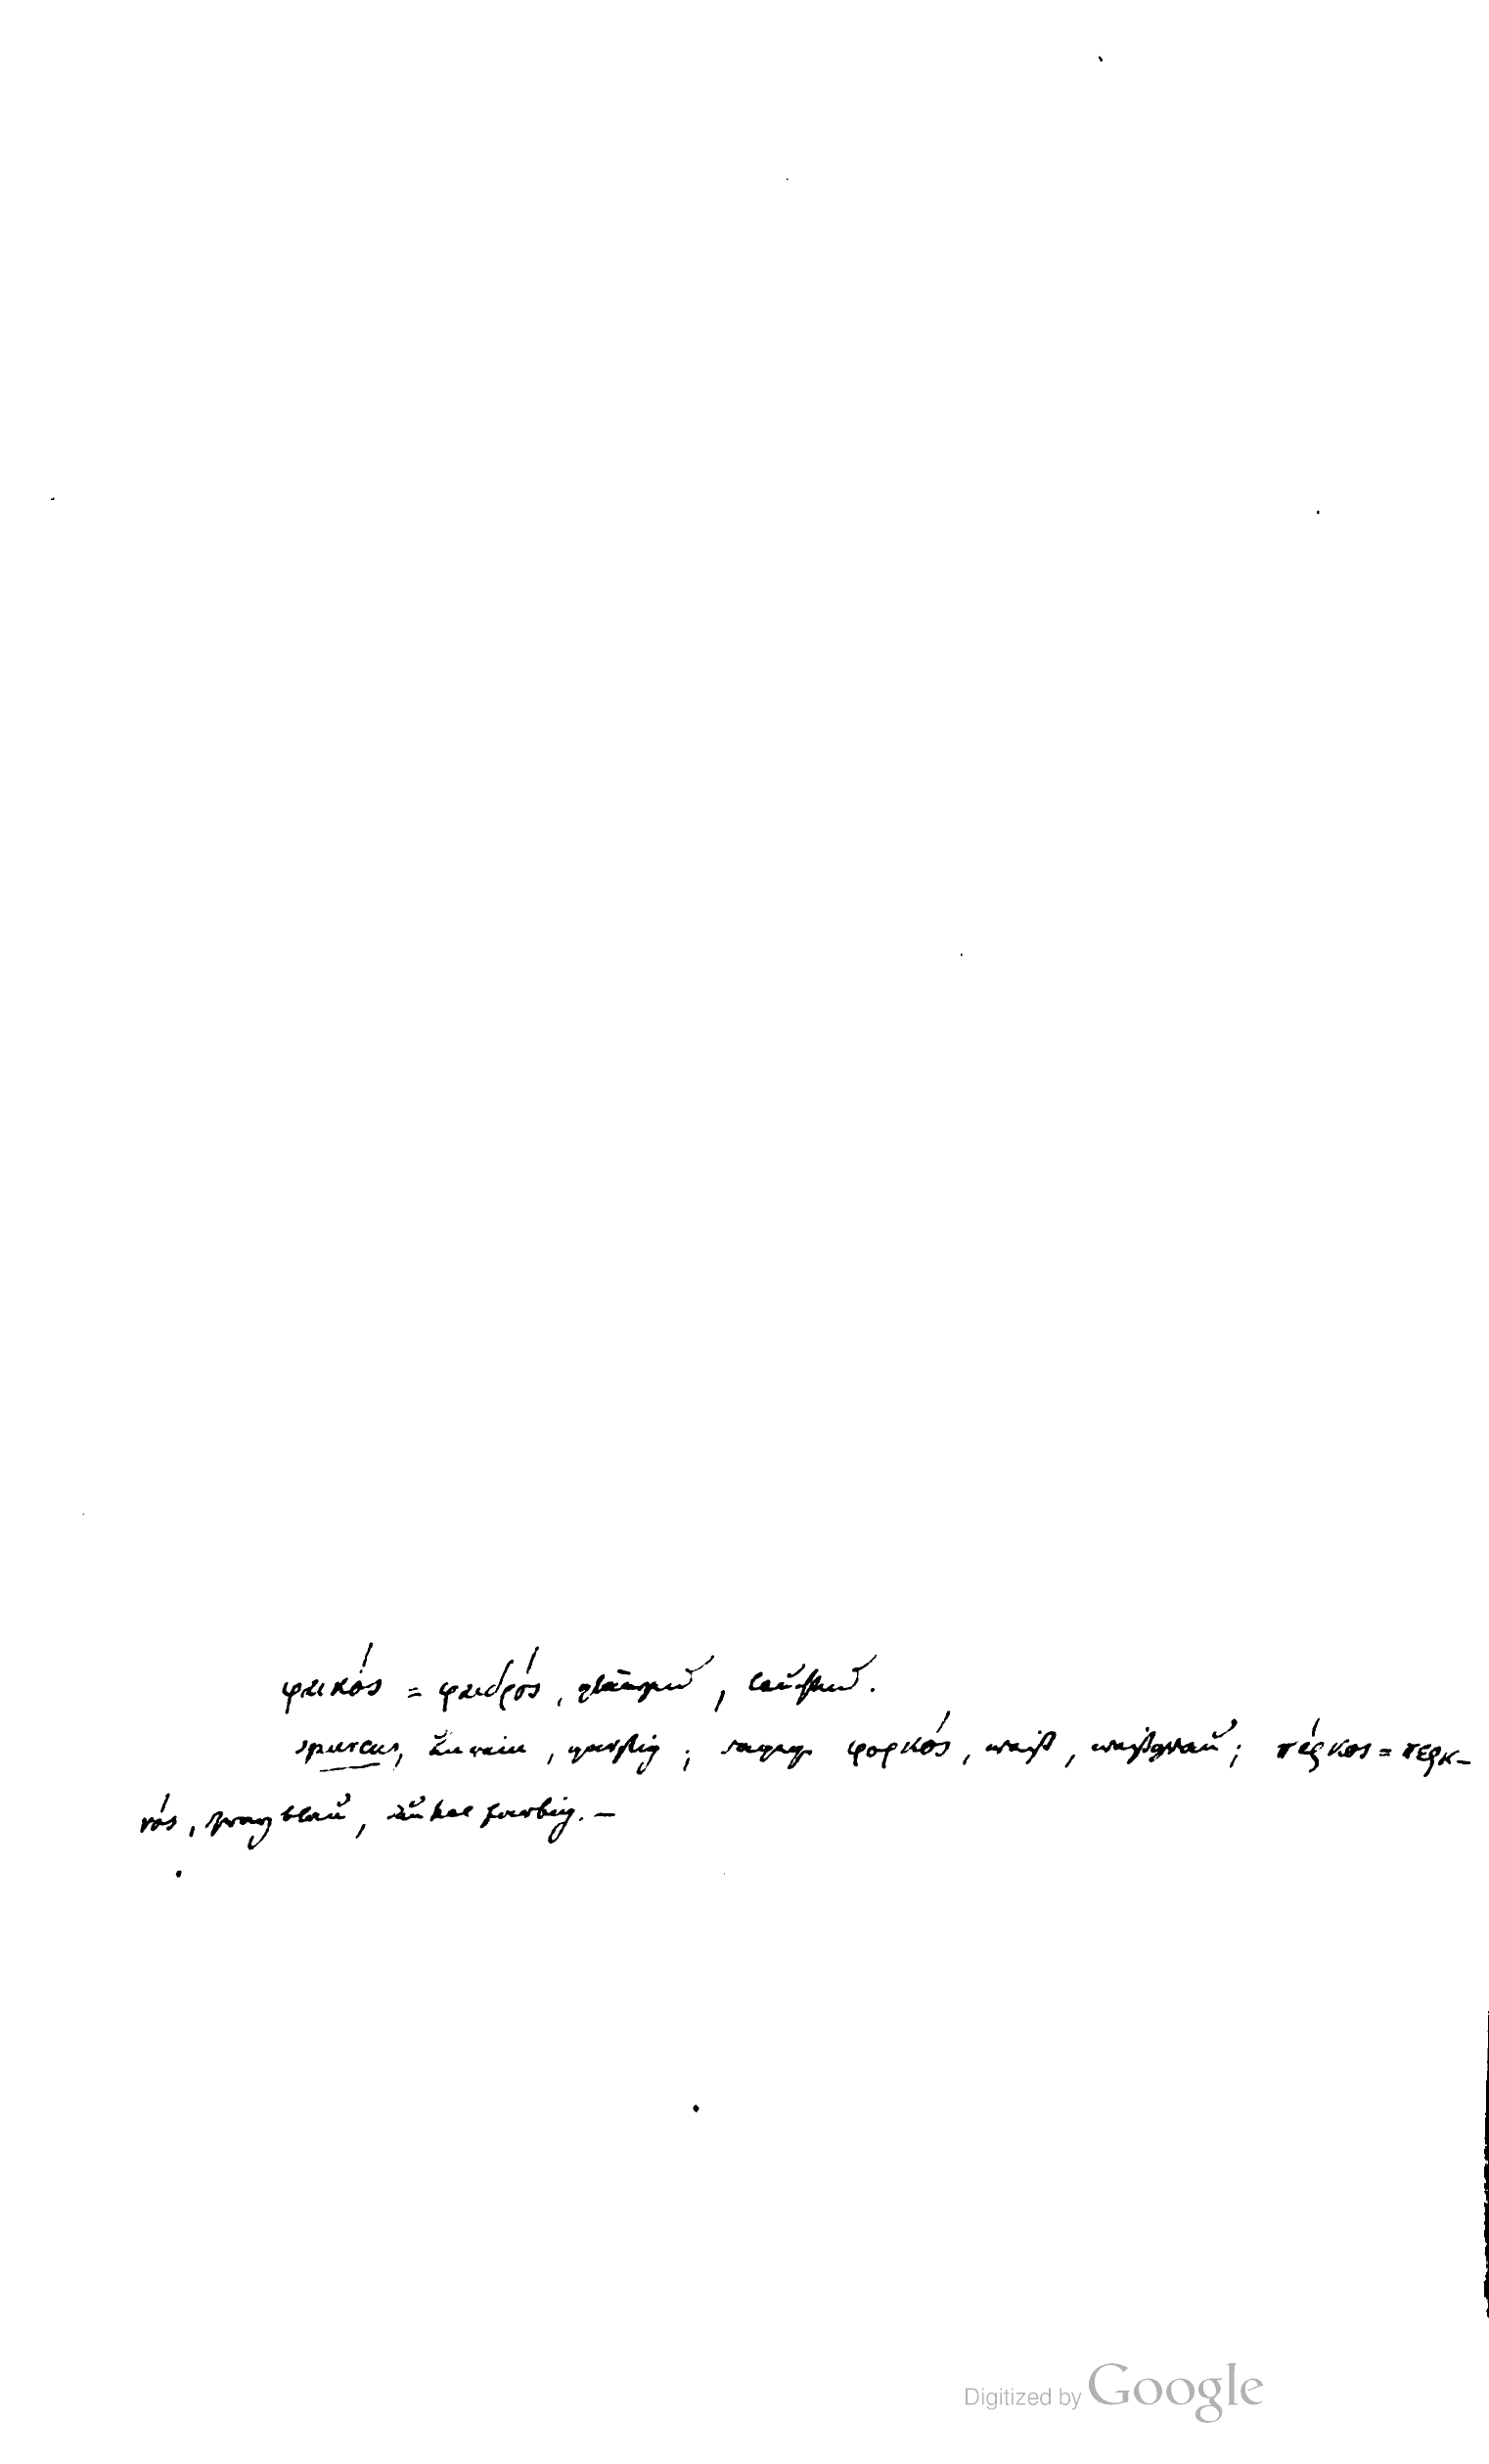 φαικός = φαιδρός, glänzend, leuchtend.
spurcus, unrein, garstig; dagegen φορκός, weiß, weißgrau; πέρκος = περκ-
νός, schwarzblau, dunkelfarbig. –
Digitized by Google